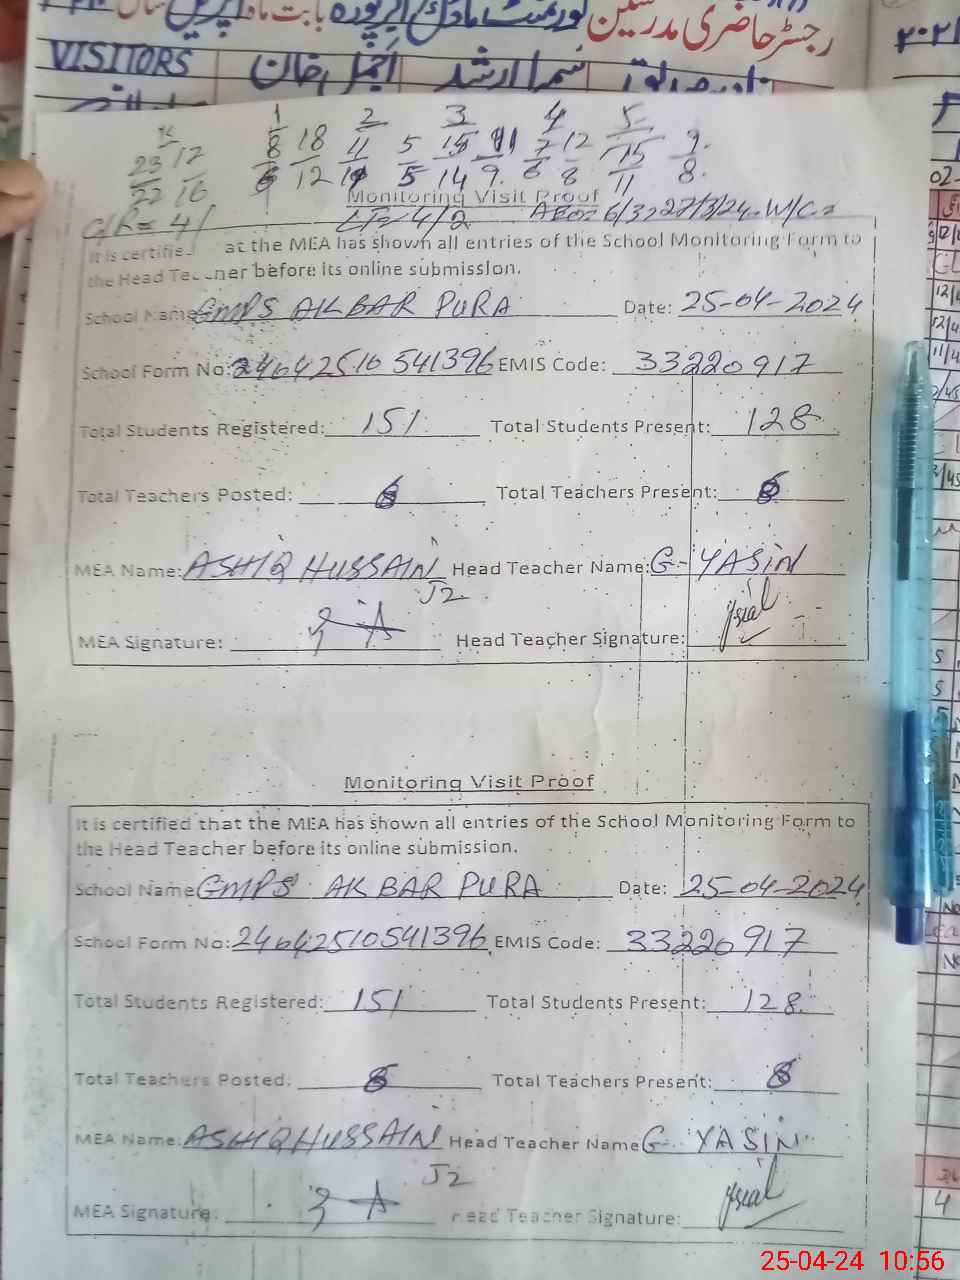 رجسٹر حاضری مدرسین گورنمنٹ ماڈل پرائمری اکبر پورہ بابت ماہ اپریل
۲۰۲۱
VISITORS اجمل خان سمرا ارشد
K 1 2 3 4 5
23 17 8 18 11 5 15 11 7 12 15 9
22 16 6 12 5 14 9 6 8 11 8
G/R = 4/ LT= 4/2 Monitoring Visit Proof AEO= 6/3, 27/3/24. W/C=
It is certified at the MEA has shown all entries of the School Monitoring Form to
the Head Teacher before its online submission.
School Name GMPS AKBAR PURA Date: 25-04-2024
School Form No: 24042510541396 EMIS Code: 33220917
Total Students Registered: 151 Total Students Present: 128
Total Teachers Posted: Total Teachers Present:
MEA Name: ASHIQ HUSSAIN Head Teacher Name: G- YASIN
J2
MEA Signature: Head Teacher Signature:
Monitoring Visit Proof
It is certified that the MEA has shown all entries of the School Monitoring Form to
the Head Teacher before its online submission.
School Name GMPS AKBAR PURA Date: 25-04-2024
School Form No: 24042510541396 EMIS Code: 33220917
Total Students Registered: 151 Total Students Present: 128
Total Teachers Posted: Total Teachers Present:
MEA Name: ASHIQ HUSSAIN Head Teacher Name G- YASIN
J2
MEA Signature: Head Teacher Signature:
25-04-24 10:56